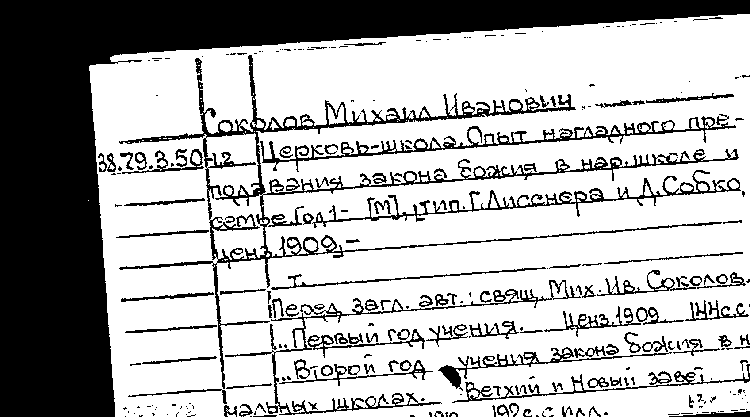 Соколов, Михаил Иванович
38.79.3.50 Церковь-школа. Опыт нагладного пре-
подавания закона божия в нар. школе и
семье. Год 1- [М], тип. Г. Лисснера и Д. Собко,
ценз. 1909,-
т.
Перед загл. авт.: свящ. Мих. Ив. Соколов.
...Первый год учения. Ценз. 1909. 144с. с
...Второй год учения закона божия в н
чальных школах. Ветхий и Новый завет.
192с. с илл.